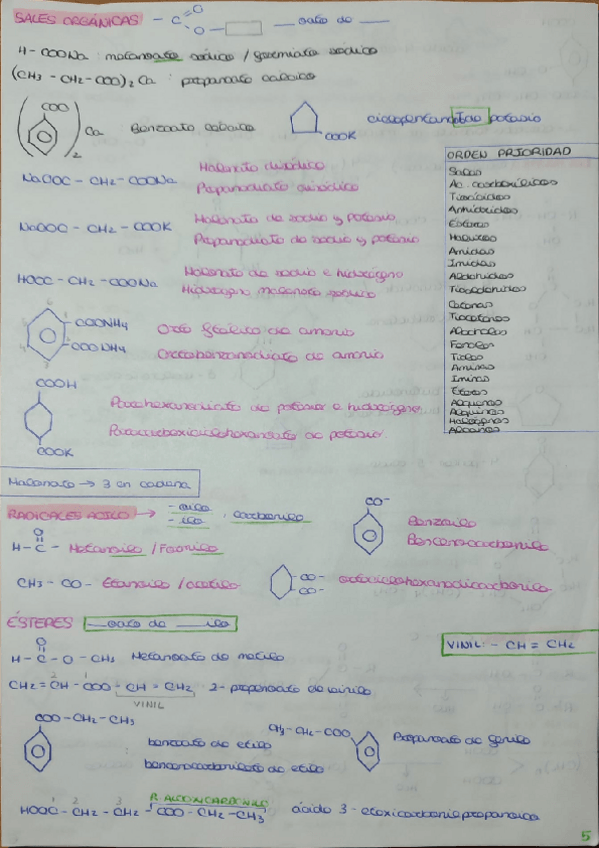 SALES ORGÁNICAS - C O O - ___oato de ___
H - COONa : metanoato sódico / formiato sódico
(CH3 - CH2 - COO)2 Ca : propanoato cálcico
( COO )2 Ca Benzoato cálcico
COOK ciclopentano potásico
ORDEN PRIORIDAD
Sales
Ac. carboxílicos
Tioácidos
Anhídridos
Ésteres
Haluros
Amidas
Imidas
Aldehídos
Tioaldehídos
Cetonas
Tiocetonas
Alcoholes
Fenoles
Tioles
Aminas
Iminas
Éteres
Alquenos
Alquinos
Halógenos
Alcanos
NaOOC - CH2 - COONa Malonato disódico
Propanodiato disódico
NaOOC - CH2 - COOK Malonato de sodio y potasio
Propanodiato de sodio y potasio
HOOC - CH2 - COONa Malonato de sodio e hidrógeno
Hidrógeno malonato sódico
COONH4
COONH4
Orto ftálico de amonio
Ortobenzanodiato de amonio
COOH
COOK
de potasio e hidrógeno
de potasio
Malonato → 3 en cadena
RADICALES ACILO → - oilo
- ilo , carbonilo
CO-
Benzoilo
Bencenocarbonilo
O
H - C - Metanoilo / Formilo
CH3 - CO - Etanoilo / acetilo
- CO -
- CO -
ortociclohexanodicarbonilo
ÉSTERES ___oato de ___ilo
VINIL: - CH = CH2
O
H - C - O - CH3 Metanoato de metilo
CH2 = CH - COO - CH = CH2 2-propenoato de vinilo
VINIL
COO - CH2 - CH3
benzoato de etilo
bencenocarboxilato de etilo
CH3 - CH2 - COO
Propanoato de fenilo
R. ALCOXICARBONILO
HOOC - CH2 - CH2 - COO - CH2 - CH3 ácido 3 - etoxicarbonilpropanoico
5